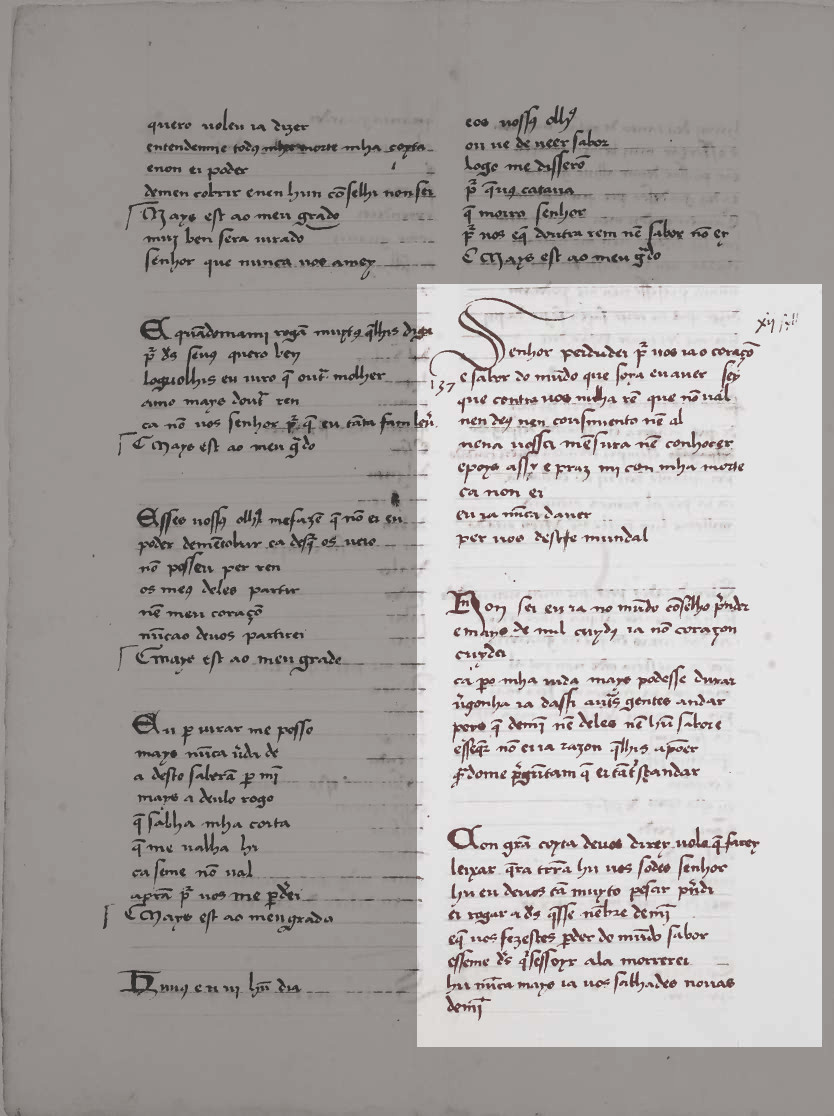 quero uoleu ia dizer
entendenme todus morte mha coyta
enon ei poder
demen cobrir enen hun cōselhi non sei
Mays est ao meu grado
mui ben sera uirado
senhor que nunca uos amey
E quādomami rogā muytꝯ q̄lhis diga
pʳ ds̄ seus quero ben
loguolhis eu iuro q̄ outʳ molher
amo mays doutʳ ren
ca nō uos senhor pʳ q̄ eu tāta
Mays est ao meu gʳdo
Esses uossꝯ olhꝯ mefazē q̄ nō ei eu
poder demēcobrir ca desq̄ os ueio
nō posseu per ren
os meꝯ deles partir
nē meu coraçō
nūcao deuos partirei
Mays est ao meu grado
Eu ꝑ uirar me posso
mays nūca ūdade
a desto saberā ꝑ mī
mays a deulo rogo
q̄ sabha mha coita
q̄ me ualha hi
ca seme nō ual
aprā pʳ uos me ꝑdei
Mays est ao meu grado
en ui hū dia
eos uossꝯ olhꝯ
ou ue de ueer sabor
logo me disserō
pʳ q̄uꝯ cataua
q̄ moiro senhor
pʳ uos eq̄ doutra rem nē sabor nō ey
Mays est ao meu gʳdo
Senhor perdudei pʳ uos ia o coraçō
137
e sabor do mūdo que soya eu auer sey
que contra uos nulha rē que nō ual
nen deꝯ nen cousimento nē al
nena uossa mēsura nē conhocer
epoys assy e praz mi con mha morte
ca non ei
eu ia nūca dauer
per uos deste mundal
Non sei eu ia no mūdo cōselho pʳnder
e mays de mil cuydꝯ ia nō coraçon
cuydei
ca ꝑo mha uida mays podesse durar
ūgonha ia dassi aūs gentes andar
pero q̄ demī nē deles nē hūu sabor e
esseqʳ nō eu ia razon q̄lhis apōer
Con grā coyta deuos dizer uolo q̄ farey
leixar q̄ra trr̄a hu uos sodes senhor
hu eu deuos tā muyto pesar pʳndi
ei rogar a ds̄ q̄sse nēbre demī
eq̄ uos fezestes ꝑder do mūdo sabor
esseme ds̄ q̄sessoyr ala morrerei
hu nūca mays ia uos sabhades nouas
demī